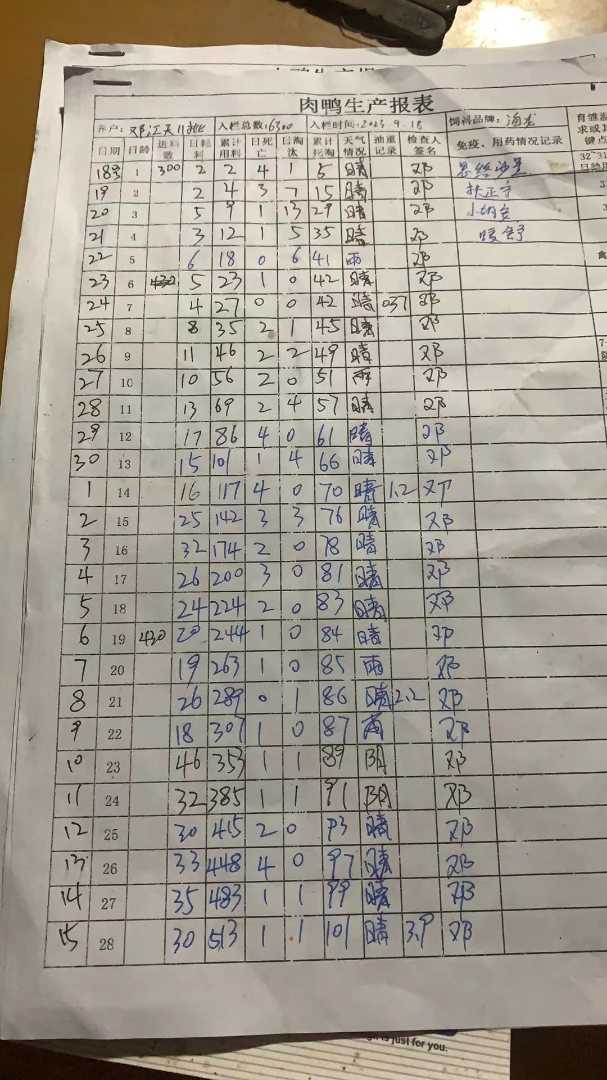 肉鸭生产报表
客户: 邓江天 入栏总数: 6300 入栏时间: 2023.9.18 饲料品牌: 海龙
日期 日龄 进料数 日耗料 累计用料 日死亡 日淘汰 累计死淘 天气情况 油重记录 检查人签名 免疫、用药情况记录
18号 1 300 2 2 4 1 5 晴 邓
19 2 2 4 3 7 15 晴 邓 扶正宁
20 3 5 9 1 13 29 晴 邓
21 4 3 12 1 5 35 晴 邓
22 5 6 18 0 6 41 雨 邓
23 6 430 5 23 1 0 42 晴 邓
24 7 4 27 0 0 42 晴 037 邓
25 8 8 35 2 1 45 晴 邓
26 9 11 46 2 2 49 晴 邓
27 10 10 56 2 0 51 雨 邓
28 11 13 69 2 4 57 晴 邓
29 12 17 86 4 0 61 晴 邓
30 13 15 101 1 4 66 晴 邓
1 14 16 117 4 0 70 晴 1.2 邓
2 15 25 142 3 3 76 晴 邓
3 16 32 174 2 0 78 晴 邓
4 17 26 200 3 0 81 晴 邓
5 18 24 224 2 0 83 晴 邓
6 19 430 20 244 1 0 84 晴 邓
7 20 19 263 1 0 85 雨 邓
8 21 26 289 0 1 86 晴 2.2 邓
9 22 18 307 1 0 87 雨 邓
10 23 46 353 1 1 89 阴 邓
11 24 32 385 1 1 91 阴 邓
12 25 30 415 2 0 93 晴 邓
13 26 33 448 4 0 97 晴 邓
14 27 35 483 1 1 99 晴 邓
15 28 30 513 1 1 101 晴 3.9 邓
is just for you.